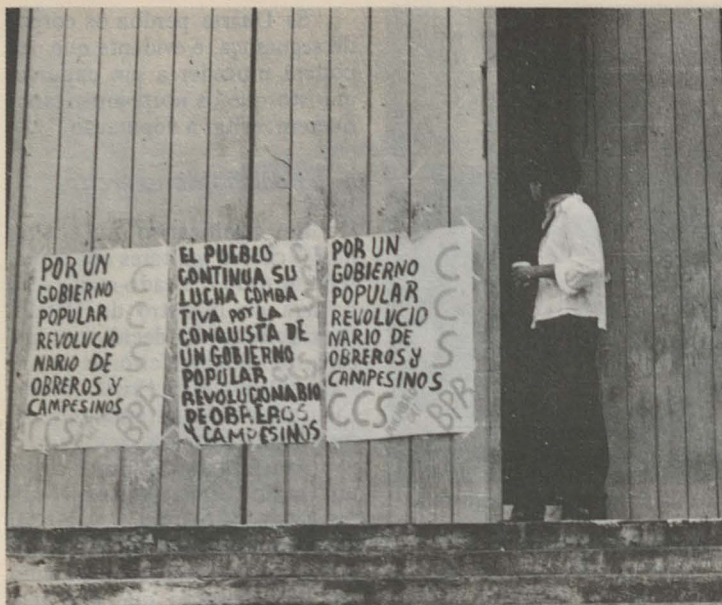 POR UN
GOBIERNO
POPULAR
REVOLUCIO
NARIO DE
OBREROS Y
CAMPESINOS
CCS
BPR
CCS
EL PUEBLO
CONTINUA SU
LUCHA COMBA
TIVA POR LA
CONQUISTA DE
UN GOBIERNO
POPULAR
REVOLUCIONARIO
DE OBREROS
Y CAMPESINOS
POR UN
GOBIERNO
POPULAR
REVOLUCIO
NARIO DE
OBREROS Y
CAMPESINOS
CCS
BPR
CCS